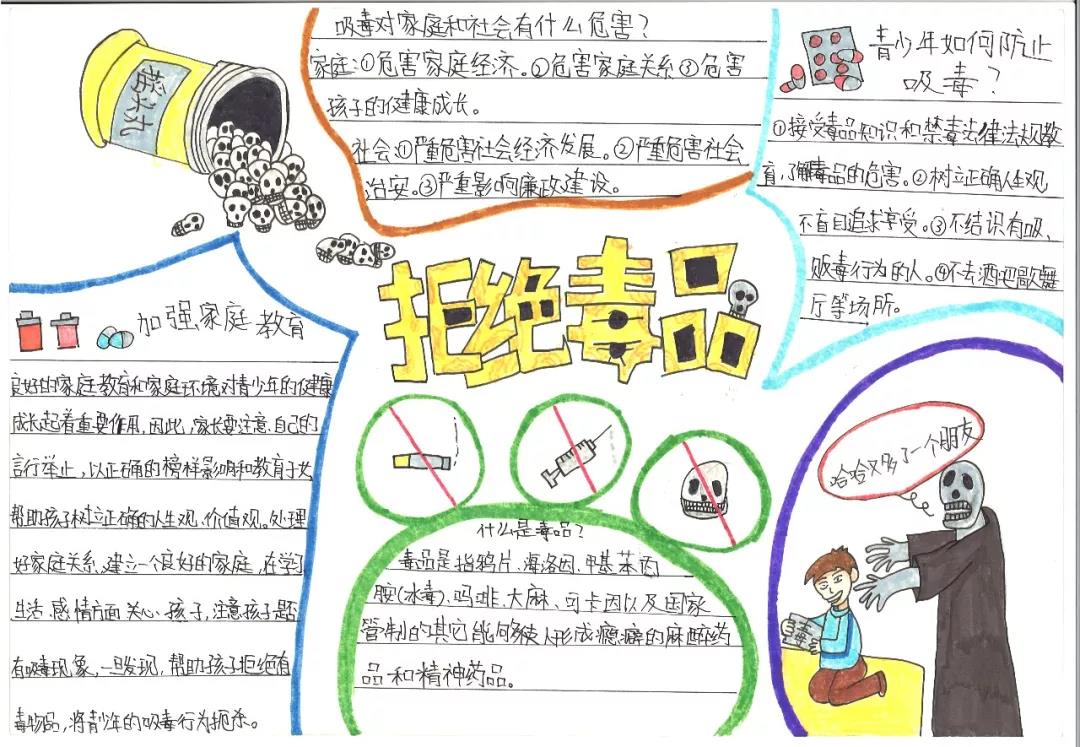 吸毒对家庭和社会有什么危害?
家庭:①危害家庭经济。②危害家庭关系③危害
孩子的健康成长。
社会:①严重危害社会经济发展。②严重危害社会
治安。③严重影响廉政建设。
青少年如何防止
吸毒?
①接受毒品知识和禁毒法律法规教
育,了解毒品的危害。②树立正确人生观
不盲目追求享受。③不结识有吸、
贩毒行为的人。④不去酒吧歌舞
厅等场所。
摇头丸
拒绝毒品
加强家庭教育
良好的家庭教育和家庭环境对青少年的健康
成长起着重要作用,因此,家长要注意自己的
言行举止,以正确的榜样影响和教育子女
帮助孩子树立正确的人生观、价值观。处理
好家庭关系,建立一个良好的家庭,在学习
生活、感情方面关心孩子,注意孩子是否
有吸毒现象,一旦发现,帮助孩子拒绝有
毒物品,将青少年的吸毒行为扼杀。
什么是毒品?
毒品是指鸦片、海洛因、甲基苯丙
胺(冰毒)、吗啡、大麻、可卡因以及国家
管制的其它能够使人形成瘾癖的麻醉药
品和精神药品。
哈哈又多了一个朋友